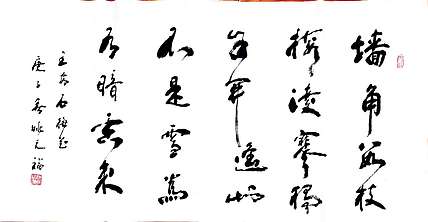 墙角数枝
梅凌寒独
自开遥知
不是雪为
有暗香来
王安石梅花
庚子春